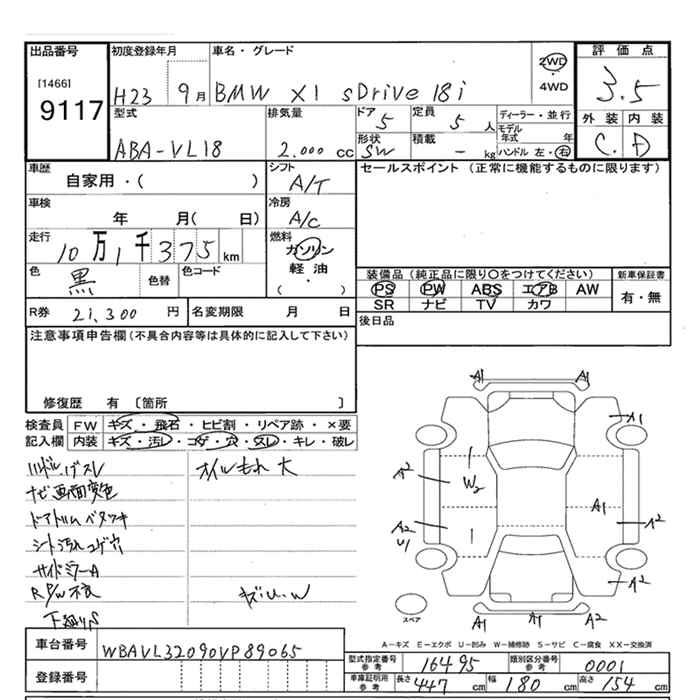 出品番号
[1466]
9117
初度登録年月
H23 9月
車名・グレード
BMW X1 sDrive 18i
2WD
・
4WD
評価点
3.5
外装 内装
C. D
型式
ABA-VL18
排気量
2.000 cc
ドア
5
定員
5 人
形状
SW
積載
- kg
ディーラー・並行
モデル年式 年
ハンドル 左・右
車歴
自家用・( )
シフト
A/T
セールスポイント (正常に機能するものに限ります)
車検
年 月( 日)
冷房
A/C
走行
10万1千375km
燃料
ガソリン
軽油
( ・ )
色
黒
色替
色コード
装備品(純正品に限り○をつけてください)
新車保証書
PS PW ABS エアB AW
SR ナビ TV カワ
有・無
R券 21,300 円
名変期限 月 日
後日品
注意事項申告欄(不具合内容等は具体的に記入して下さい)
修復歴 有 〔箇所 〕
検査員 FW キズ・飛石・ヒビ割・リペア跡・×要
記入欄 内装 キズ・汚レ・コゲ・穴・スレ・キレ・破レ
ハンドルスレ
オイルもれ 大
ナビ画面変色
ドアトリムベタツキ
シート汚れコゲ穴
サイドミラーA
R P/W不良
W
A1 A1
A1
A2
W2
A1
A2
A2
U1
A2
スペア
A1 A1 A2
A-キズ E-エクボ U-凹み W-補修跡 S-サビ C-腐食 XX-交換済
車台番号
WBAVL32090VP89065
登録番号
型式指定番号 参考
16495
類別区分番号 参考
0001
車庫証明用 参考
長さ 447 cm
幅 180 cm
高さ 154 cm